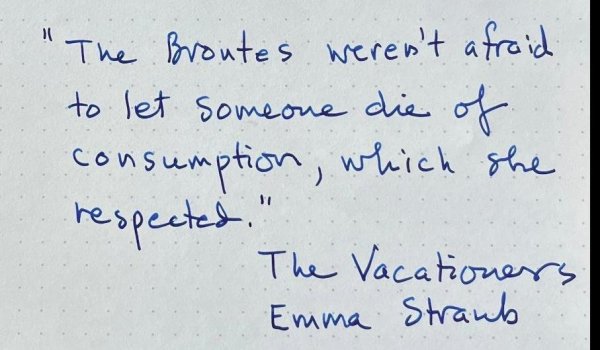 "The Brontes weren't afraid
to let someone die of
consumption, which she
respected."
The Vacationers
Emma Straub